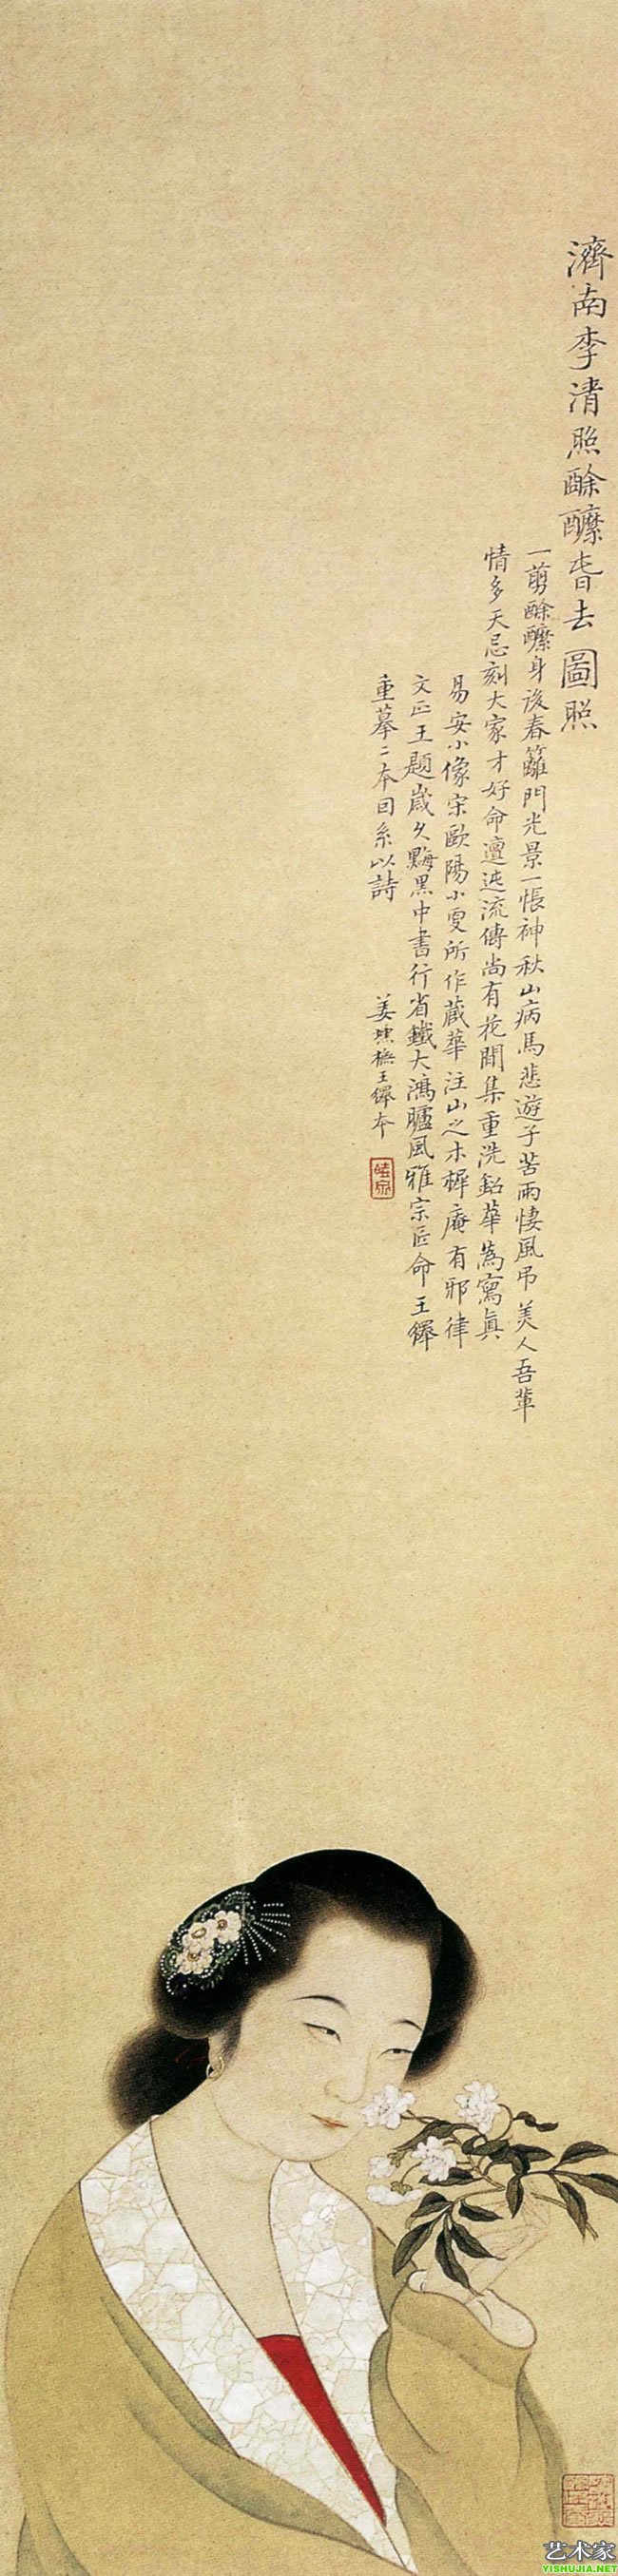 濟南李清照酴醾春去圖照
一剪酴醾身後春籬門光景一悵神秋山病馬悲遊子苦雨悽風弔美人吾輩
情多天忌刻大家才好命邅迍流傳尚有花間集重洗鉛華為寫真
易安小像宋歐陽小叟所作藏華注山之木樨庵有邪律
文正王題歲久黣黑中書行省鐵大鴻臚風雅宗匠命王鐸
重摹二本因系以詩
姜壎橅王鐸本
艺术家
YISHUJIA.NET